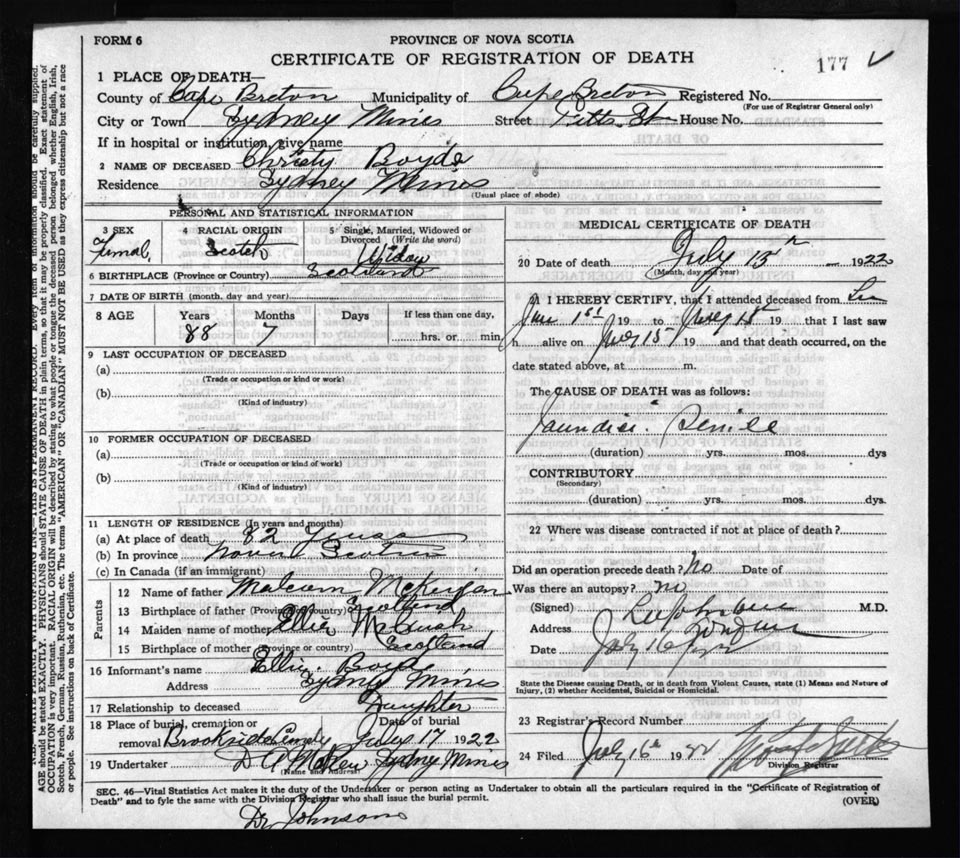 FORM 6
PROVINCE OF NOVA SCOTIA
CERTIFICATE OF REGISTRATION OF DEATH
177
1 PLACE OF DEATH—
County of Cape Breton Municipality of Cape Breton Registered No.
(For use of Registrar General only)
City or Town Sydney Mines Street Pitts St House No.
If in hospital or institution, give name
2 NAME OF DECEASED Christy Boyde
Residence Sydney Mines
(Usual place of abode)
PERSONAL AND STATISTICAL INFORMATION
3 SEX 4 RACIAL ORIGIN 5 Single, Married, Widowed or Divorced (Write the word)
Femal Scotch Widow
6 BIRTHPLACE (Province or Country) Scotland
7 DATE OF BIRTH (month, day and year)
8 AGE Years Months Days If less than one day,
88 7 hrs. or min.
9 LAST OCCUPATION OF DECEASED
(a)
(Trade or occupation or kind or work)
(b)
(Kind of industry)
10 FORMER OCCUPATION OF DECEASED
(a)
(Trade or occupation or kind of work)
(b)
(Kind of industry)
11 LENGTH OF RESIDENCE (In years and months)
(a) At place of death 82 years
(b) In province Nova Scotia
(c) In Canada (if an immigrant)
Parents
12 Name of father Malcom
13 Birthplace of father (Province or country) Scotland
14 Maiden name of mother Ellie
15 Birthplace of mother (Province or country) Scotland
16 Informant's name Ellie Boyde
Address Sydney Mines
17 Relationship to deceased Daughter
18 Place of burial, cremation or removal Date of burial
Brookside Cemetry July 17 1922
19 Undertaker Sydney Mines
(Name and Address)
MEDICAL CERTIFICATE OF DEATH
20 Date of death July 15th 1922
(Month, day and year)
21 I HEREBY CERTIFY, that I attended deceased from
June 1st 19 to July 15th 19 that I last saw
h alive on July 15 19 and that death occurred, on the
date stated above, at m.
The CAUSE OF DEATH was as follows:
Jaundice Senile
(duration) yrs. mos. dys
CONTRIBUTORY
(Secondary)
(duration) yrs. mos. dys.
22 Where was disease contracted if not at place of death?
Did an operation precede death? No Date of
Was there an autopsy? no
(Signed) M.D.
Address
Date July 16
State the Disease causing Death, or in death from Violent Causes, state (1) Means and Nature of
Injury, (2) whether Accidental, Suicidal or Homicidal.
23 Registrar's Record Number
24 Filed July 16th 1922
Division Registrar
SEC. 46—Vital Statistics Act makes it the duty of the Undertaker or person acting as Undertaker to obtain all the particulars required in the "Certificate of Registration of
Death" and to fyle the same with the Division Registrar who shall issue the burial permit.
(OVER)
Dr Johnson